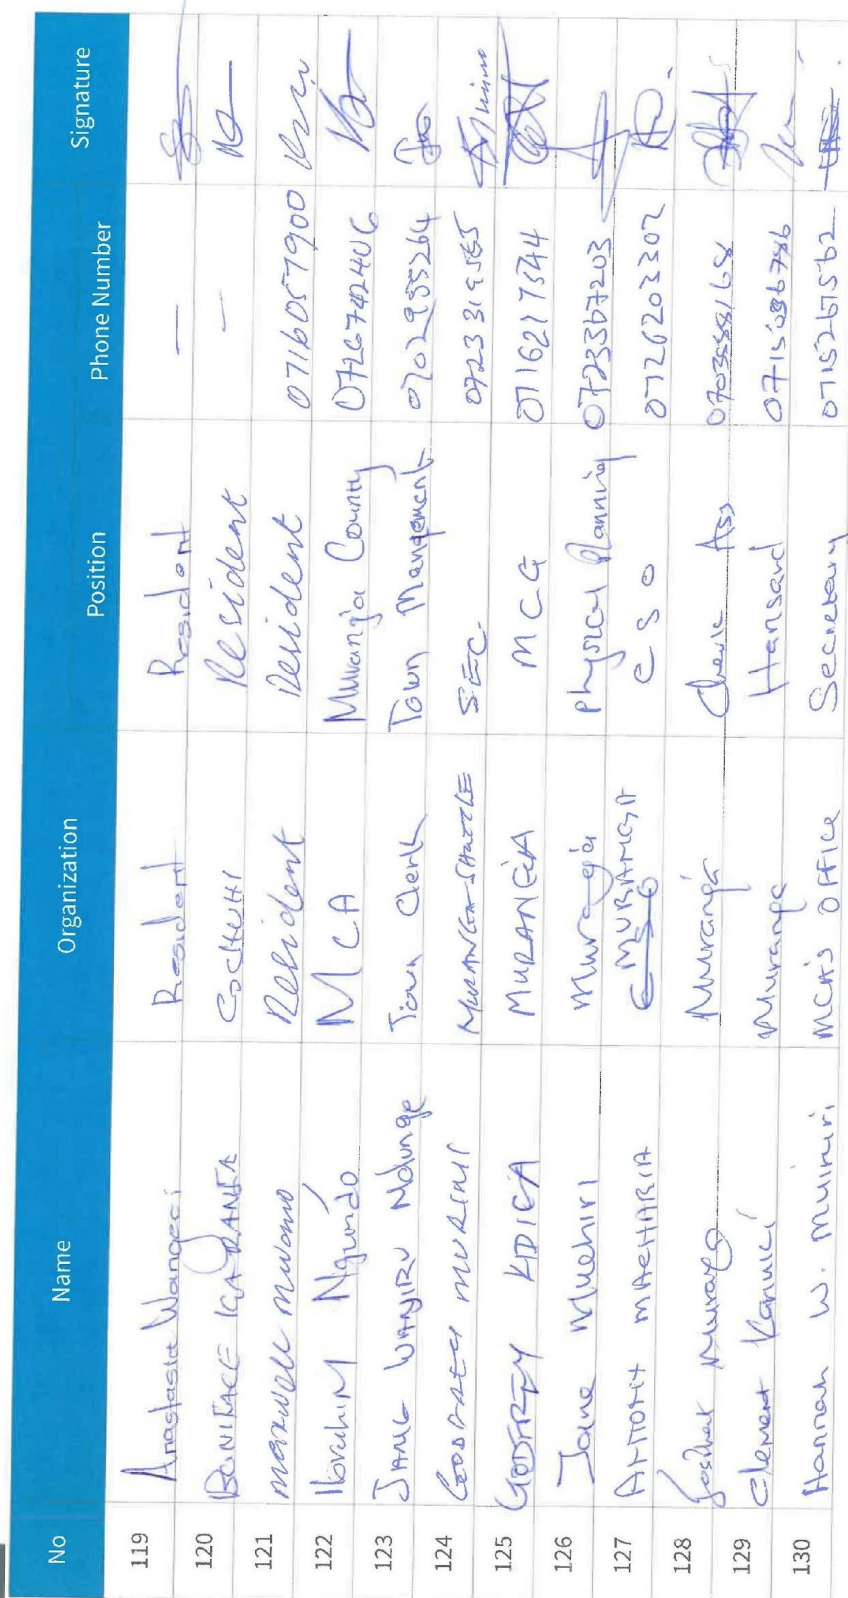 No Name Organization Position Phone Number Signature
119 Anastasia Wangeci Resident Resident —
120 BONIFACE Resident —
121 maxwell mwano Resident Resident 0716057900
122 Ibrahim Ngundo MCA Muranga County 0726742406
123 JAMES WANJIRU Ndunge Town Clerk Town Management 0702955264
124 GODFREY MURIMI MURANGA SHUTTLE SEC 0723319565
125 GODFREY MURANGA MCG 0716217544
126 Jane Muthiri Muranga Physical Planning 0723367203
127 ANTONY MACHARIA MURANGA CSO 0726203302
128 Muranga Ass 0703888168
129 Clement Kamici Muranga Hansard
130 Hannah W. Muiruri MCA'S OFFICE Secretary 0715267562